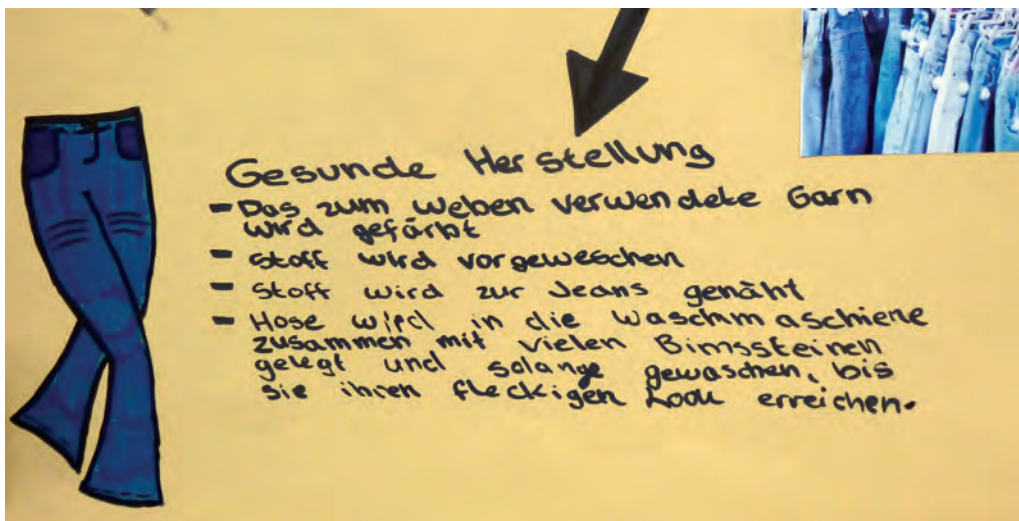 Gesunde Herstellung
- Das zum weben verwendete Garn
wird gefärbt
- Stoff wird vorgeweschen
- Stoff wird zur Jeans genäht
- Hose wird in die Waschmaschiene
zusammen mit vielen Bimssteinen
gelegt und solange gewaschen, bis
sie ihren fleckigen Look erreichen.